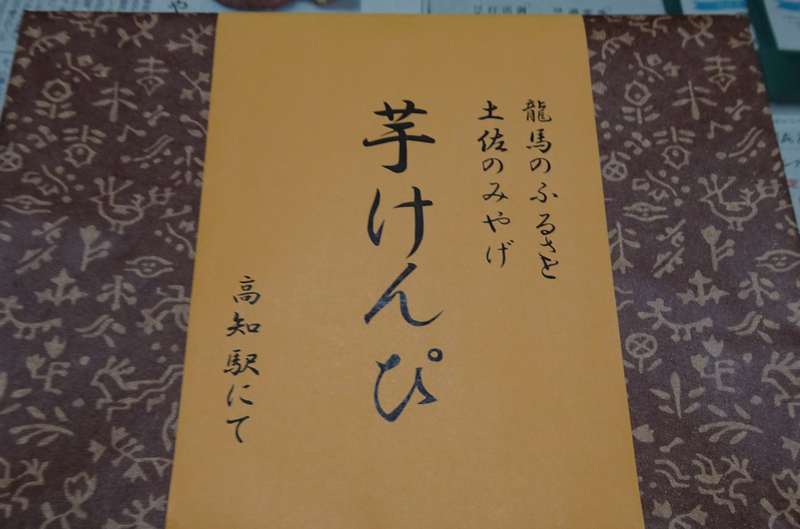 龍馬のふるさと
土佐のみやげ
芋けんぴ
高知駅にて